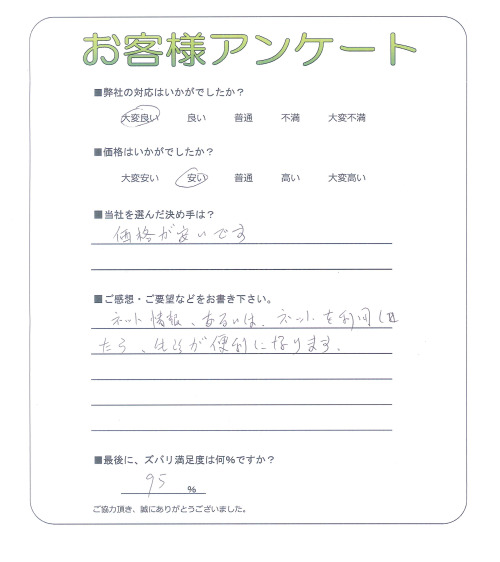 お客様アンケート
■弊社の対応はいかがでしたか？
大変良い 良い 普通 不満 大変不満
■価格はいかがでしたか？
大変安い 安い 普通 高い 大変高い
■当社を選んだ決め手は？
価格が安いです
■ご感想・ご要望などをお書き下さい。
ネット情報、あるいは、ネットを利用し
たら、生活が便利になります。
■最後に、ズバリ満足度は何％ですか？
95 ％
ご協力頂き、誠にありがとうございました。